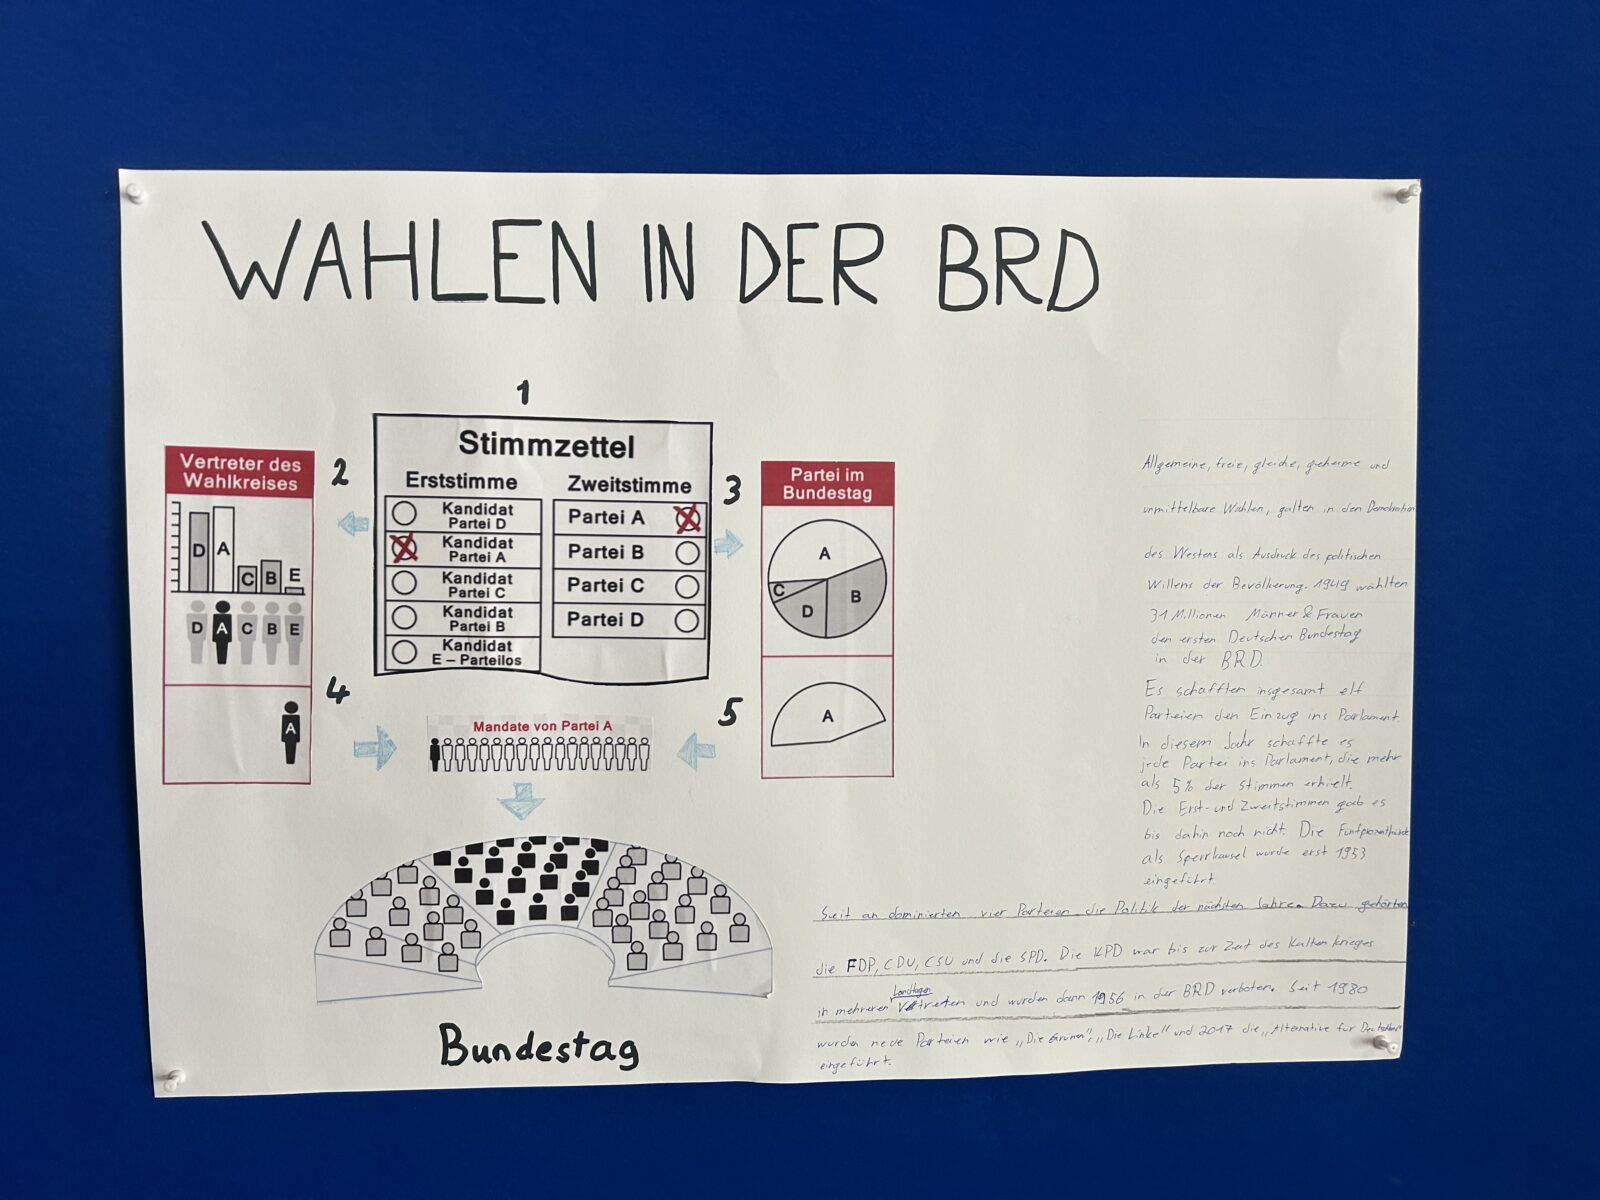 WAHLEN IN DER BRD
1
Stimmzettel
Erststimme
Zweitstimme
Kandidat
Partei D
Kandidat
Partei A
Kandidat
Partei C
Kandidat
Partei B
Kandidat
E – Parteilos
Partei A
Partei B
Partei C
Partei D
2
Vertreter des
Wahlkreises
D A C B E
D A C B E
3
Partei im
Bundestag
A
B
C
D
4
A
Mandate von Partei A
5
A
Bundestag
Allgemeine, freie, gleiche, geheime und
unmittelbare Wahlen, galten in den Demokratien
des Westens als Ausdruck des politischen
Willens der Bevölkerung. 1949 wählten
31 Millionen Männer & Frauen
den ersten Deutschen Bundestag
in der BRD.
Es schafften insgesamt elf
Parteien den Einzug ins Parlament.
In diesem Jahr schaffte es
jede Partei ins Parlament, die mehr
als 5% der Stimmen erhielt.
Die Erst- und Zweitstimmen gab es
bis dahin noch nicht. Die
als wurde erst 1953
eingeführt.
Seit an dominierten vier Parteien die Politik der nächsten Jahre. Dazu gehörten
die FDP, CDU, CSU und die SPD. Die KPD war bis zur Zeit des Kalten Krieges
in mehreren Landtagen und wurden dann 1956 in der BRD verboten. Seit 1980
wurden neue Parteien wie „Die Grünen", „Die Linke" und 2017 die „Alternative für
eingeführt.